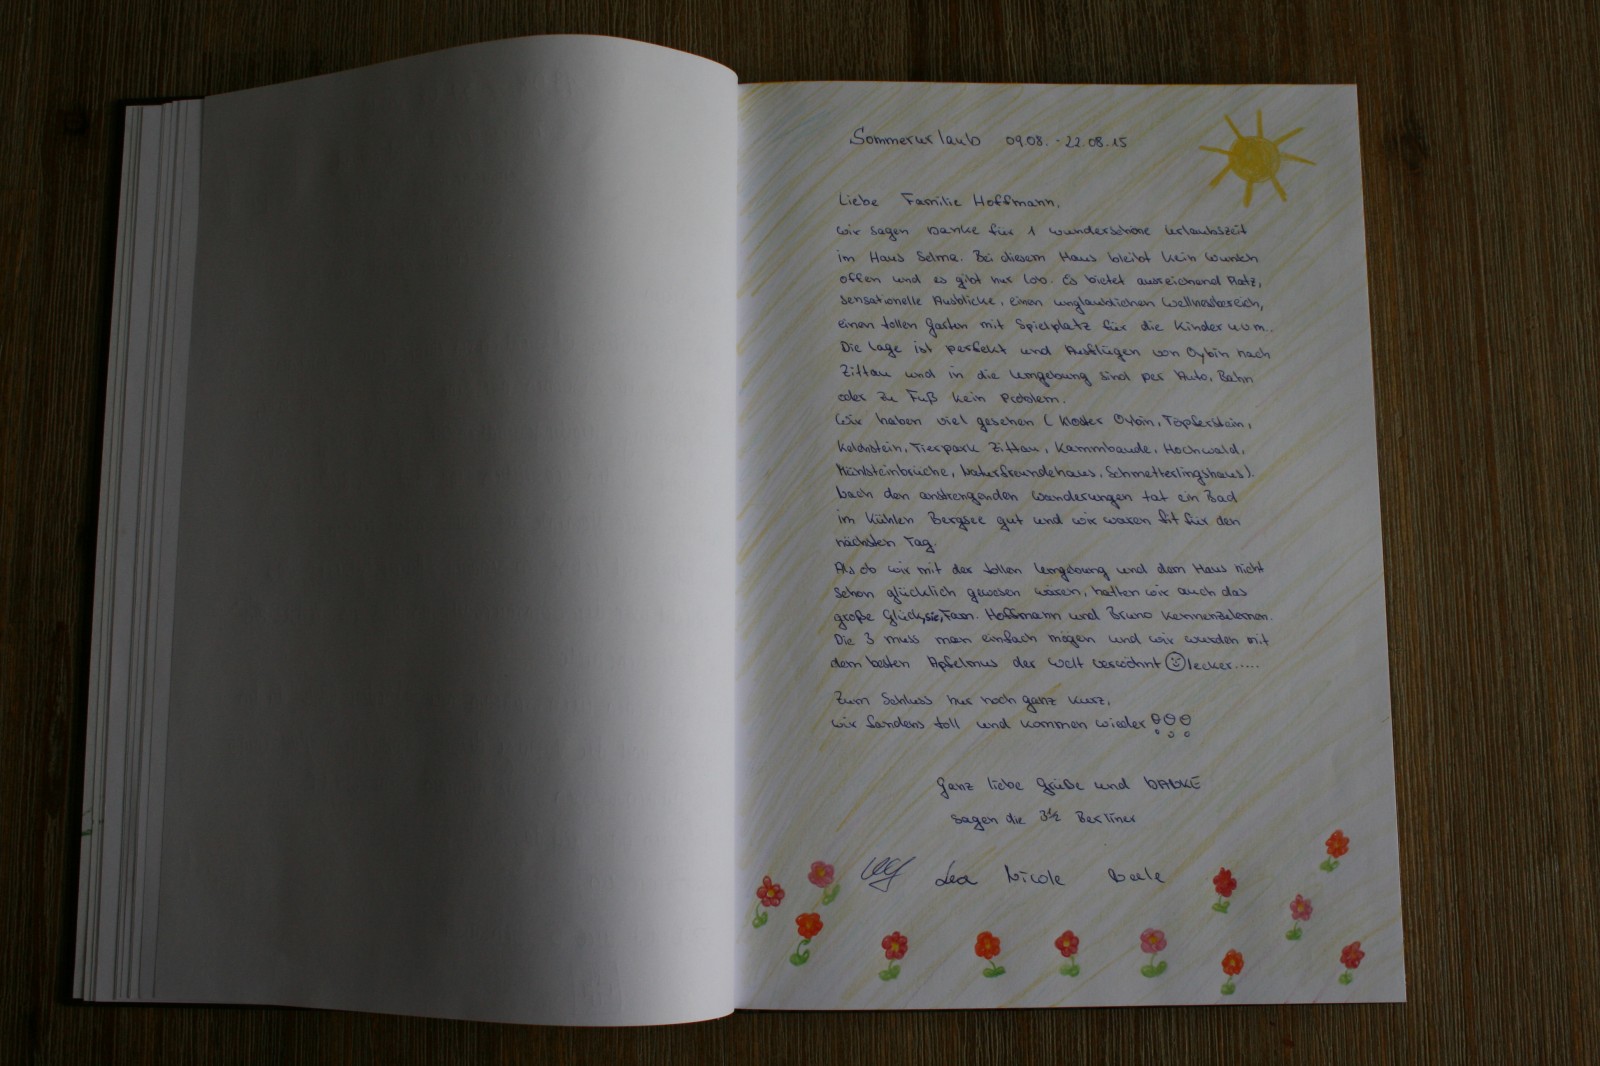 Sommerurlaub 09.08. - 22.08.15
Liebe Familie Hoffmann,
wir sagen Danke für 1 wunderschöne Urlaubszeit
im Haus Selma. Bei diesem Haus bleibt kein Wunsch
offen und es gibt nur Lob. Es bietet ausreichend Platz,
sensationelle Ausblicke, einen unglaublichen Wellnessbereich,
einen tollen Garten mit Spielplatz für die Kinder u.v.m..
Die Lage ist perfekt und Ausflügen von Oybin nach
Zittau und in die Umgebung sind per Auto, Bahn
oder zu Fuß kein Problem.
Wir haben viel gesehen (Kloster Oybin, Töpferstein,
Kelchstein, Tierpark Zittau, Kammbaude, Hochwald,
Mühlsteinbrüche, Naturfreundehaus, Schmetterlingshaus).
Nach den anstrengenden Wanderungen tat ein Bad
im kühlen Bergsee gut und wir waren fit für den
nächsten Tag.
Als ob wir mit der tollen Umgebung und dem Haus nicht
schon glücklich gewesen wären, hatten wir auch das
große Glück, sie, Fam. Hoffmann und Bruno kennenzulernen.
Die 3 muss man einfach mögen und wir wurden mit
dem besten Apfelmus der Welt verwöhnt lecker.....
Zum Schluss nur noch ganz kurz,
wir fandens toll und kommen wieder !!!
Ganz liebe Grüße und DANKE
sagen die 3½ Berliner
Lea Nicole